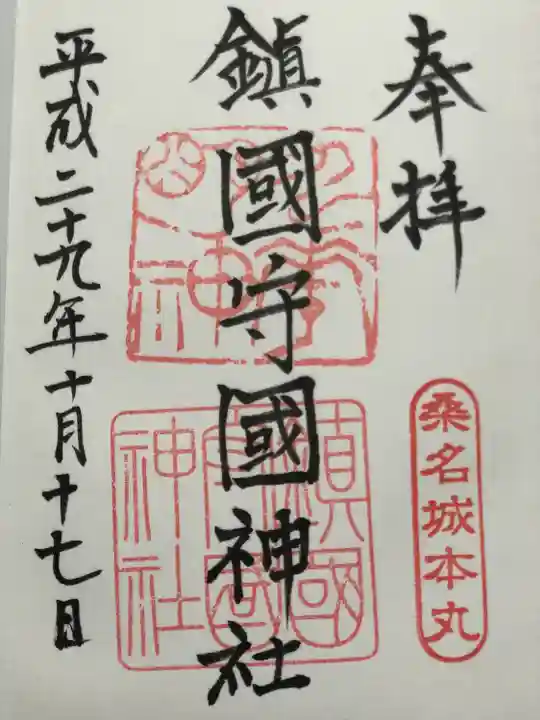 奉拝
桑名城本丸
鎮國守國神社
鎮國
守国
神社
平成二十九年十月十七日